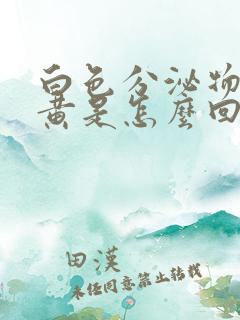 白色分泌物
黄是怎麼回
田漢
未经同意禁止转载